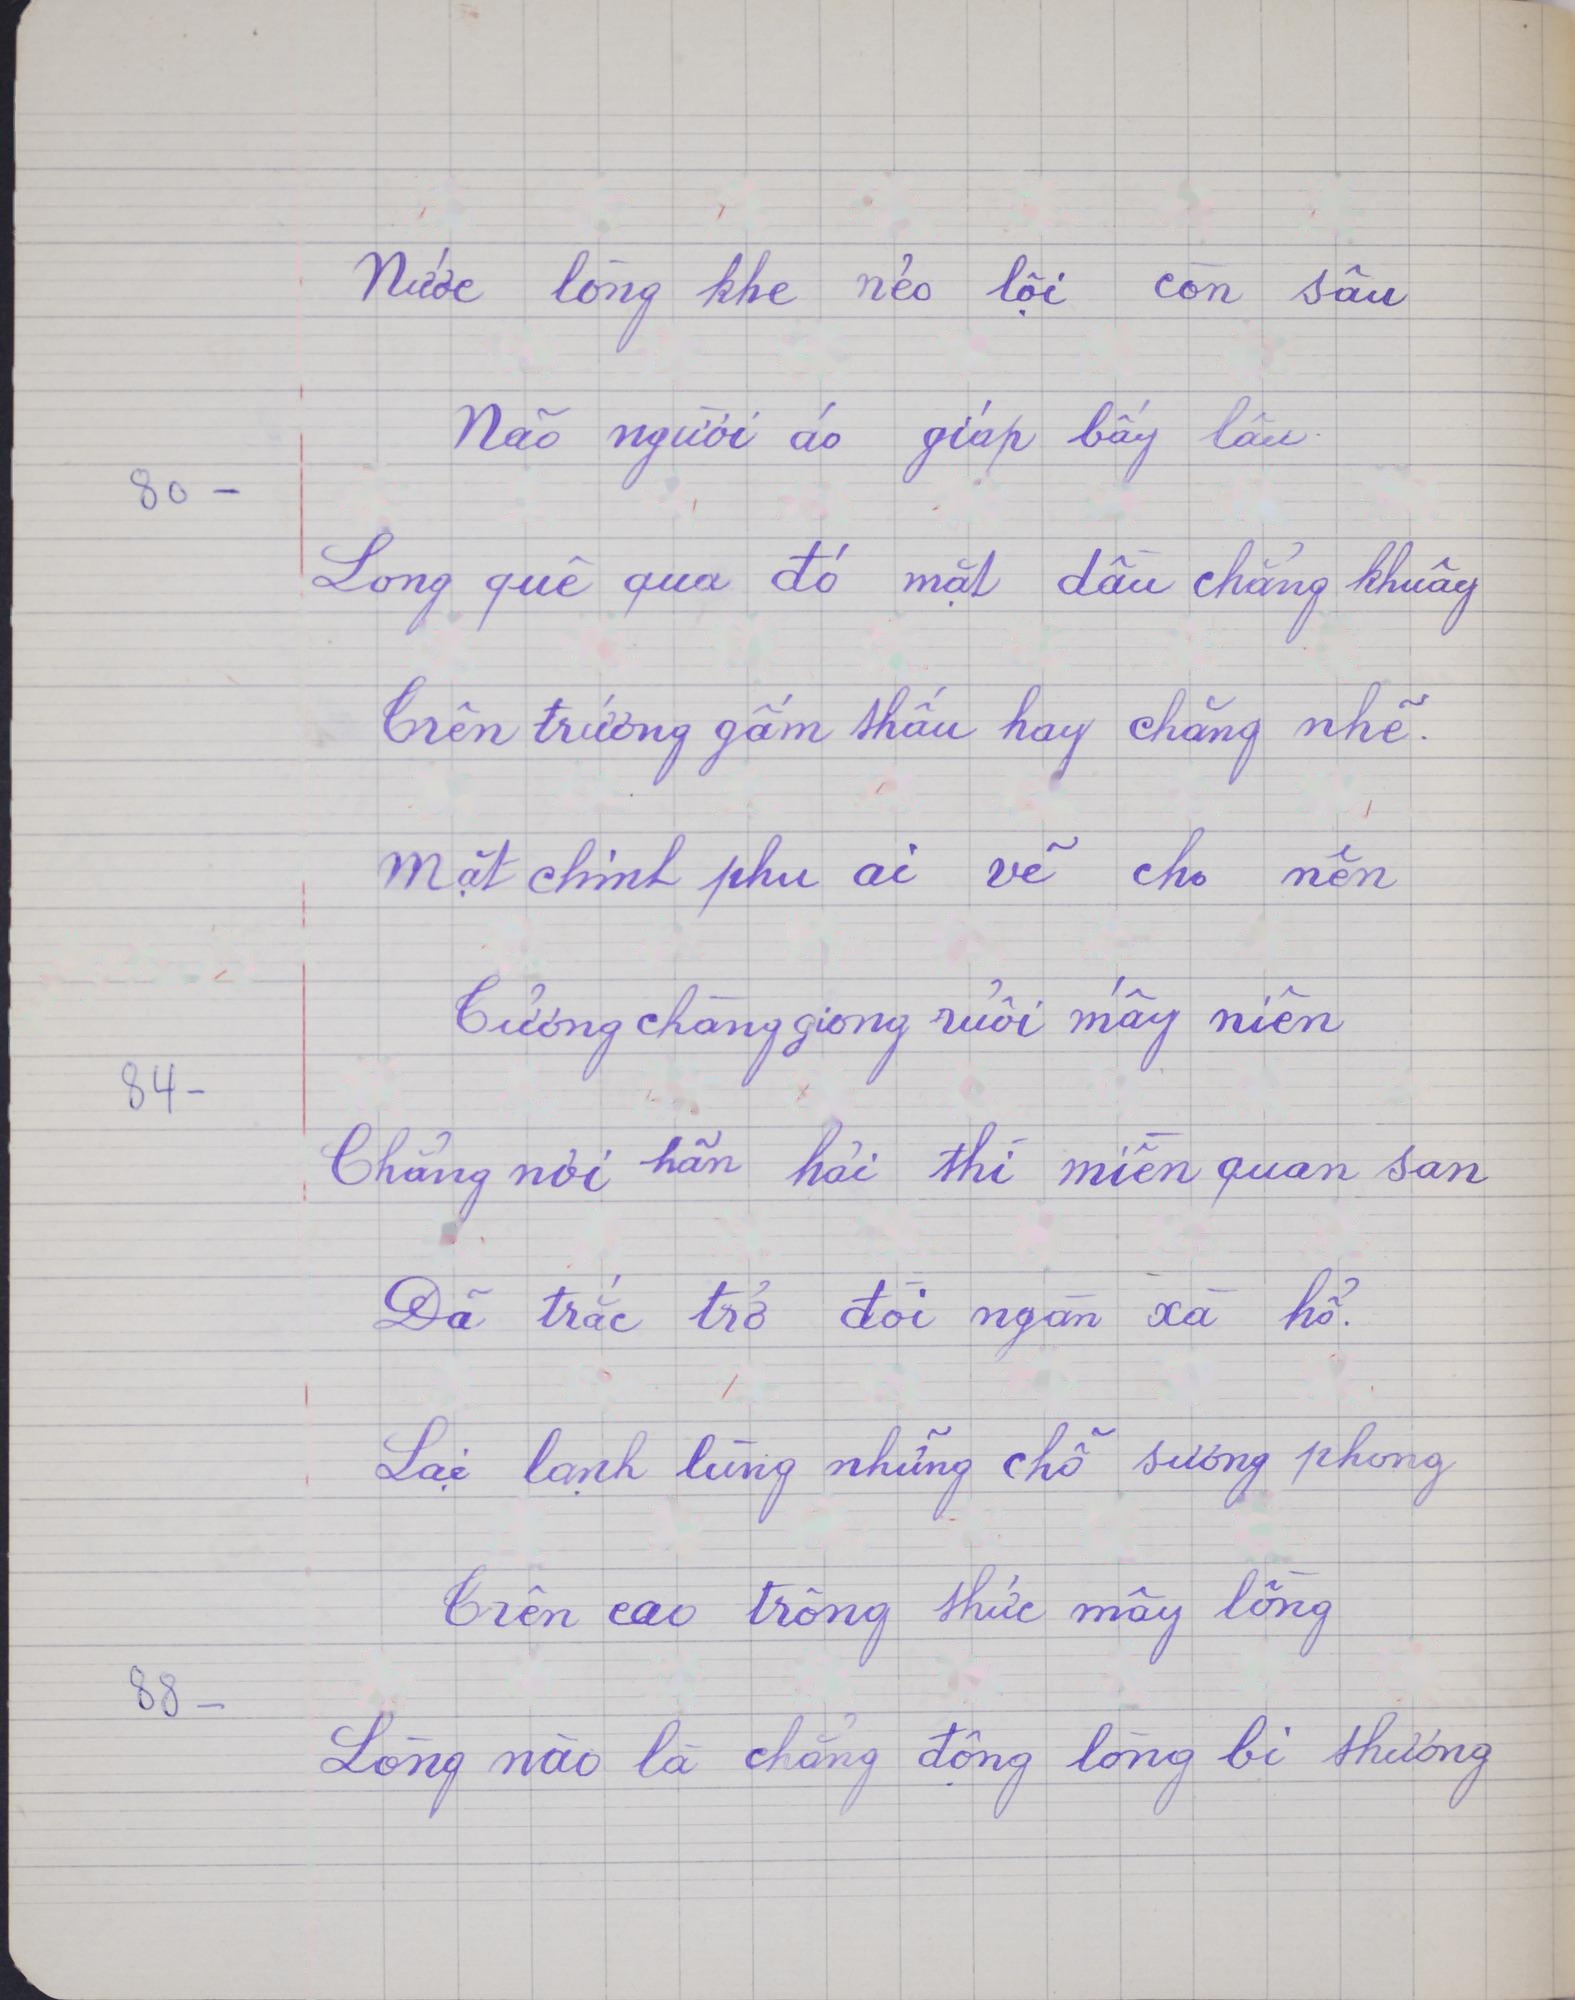 Nước lòng khe nẻo lội còn sâu
Não người áo giáp bấy lâu.
80 -
Lòng quê qua đó mặt dầu chẳng khuây
Trên trướng gấm thấu hay chăng nhẽ.
Mặt chinh phu ai vẽ cho nên
Tưởng chàng giong ruổi mấy niên
84-
Chẳng nơi hãn hải thì miền quan san
Đã trắc trở đòi ngàn xà hổ.
Lại lạnh lùng những chỗ sương phong
Trên cao trông thức mây lồng
88-
Lòng nào là chẳng động lòng bi thương